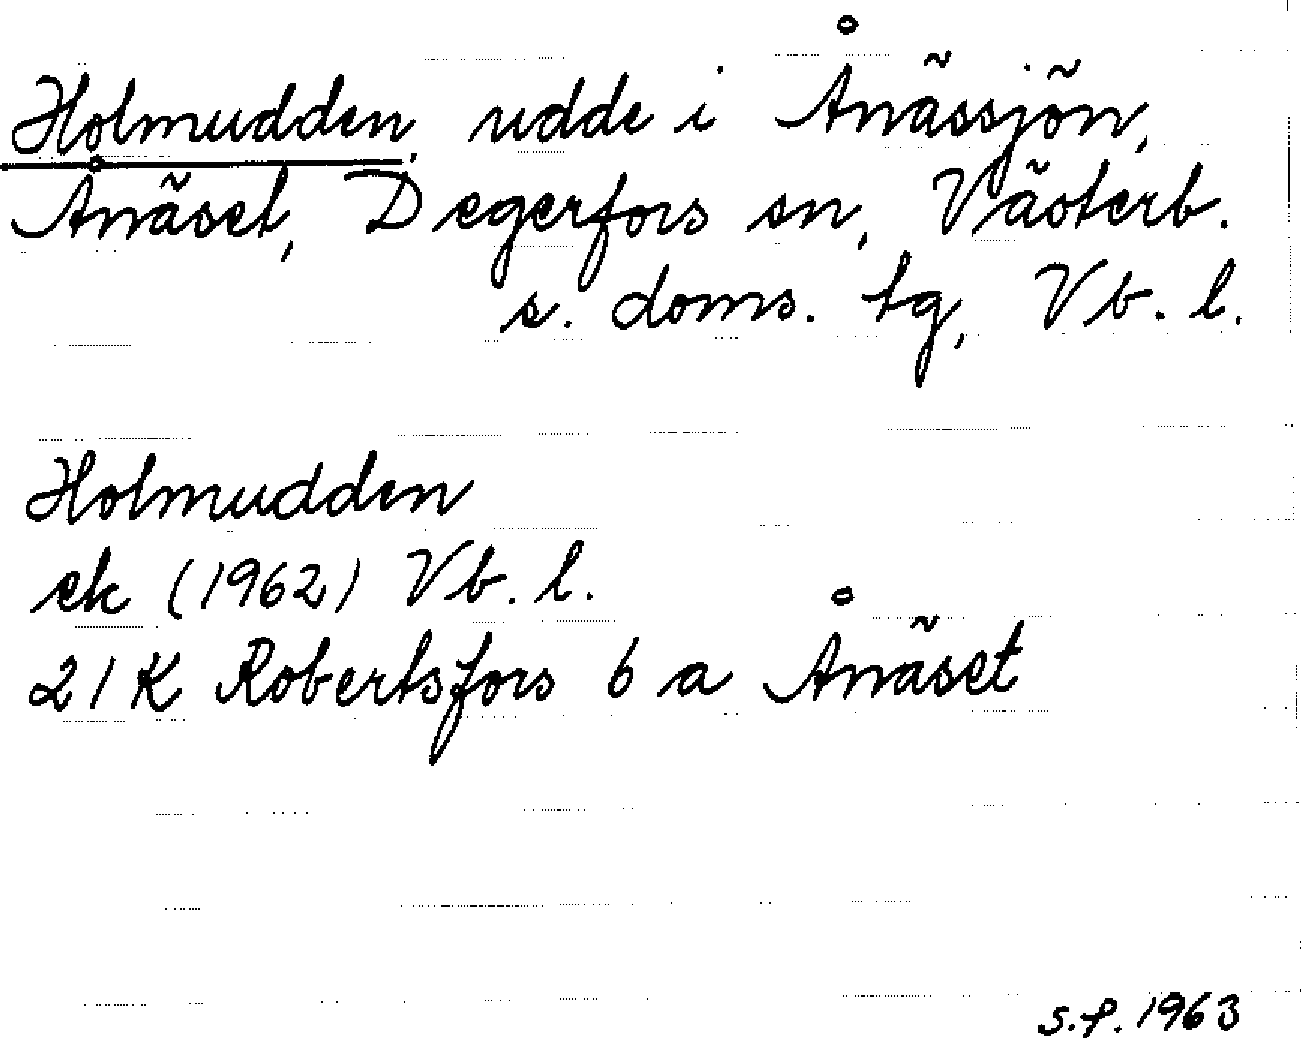 Holmudden, udde i Ånässjön,
Ånäset, Degerfors sn, Västerb.
s. doms. tg, Vb. l.
Holmudden
ek (1962) Vb. l.
21 K Robertsfors 6 a Ånäset
S.P. 1963